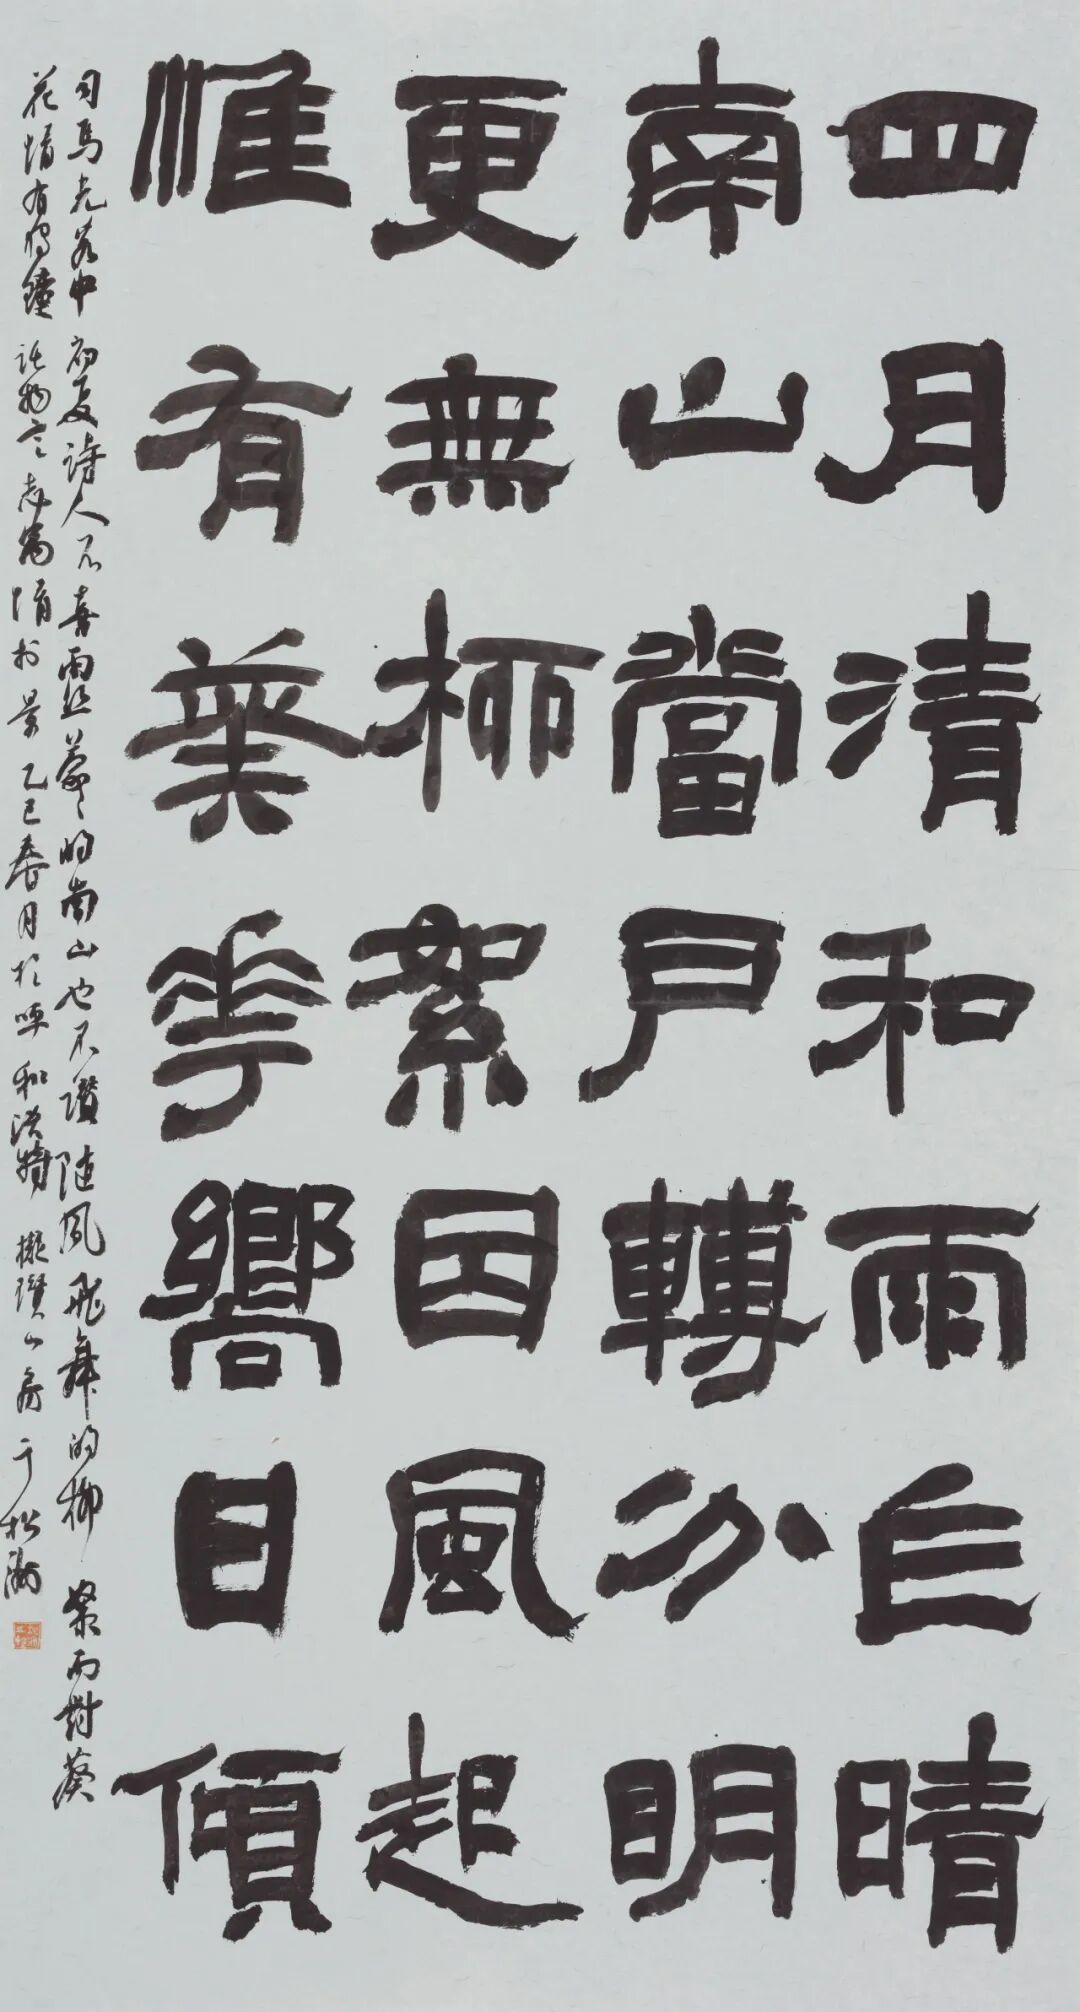 四月清和雨乍晴
南山當戶轉分明
更無柳絮因風起
惟有葵花嚮日傾
司馬光客中初夏詩人不喜雨的南山也不讚隨風飛舞的柳絮而對葵
花情有獨鐘託物言志寓情於景乙巳春月於呼和浩特山房于松